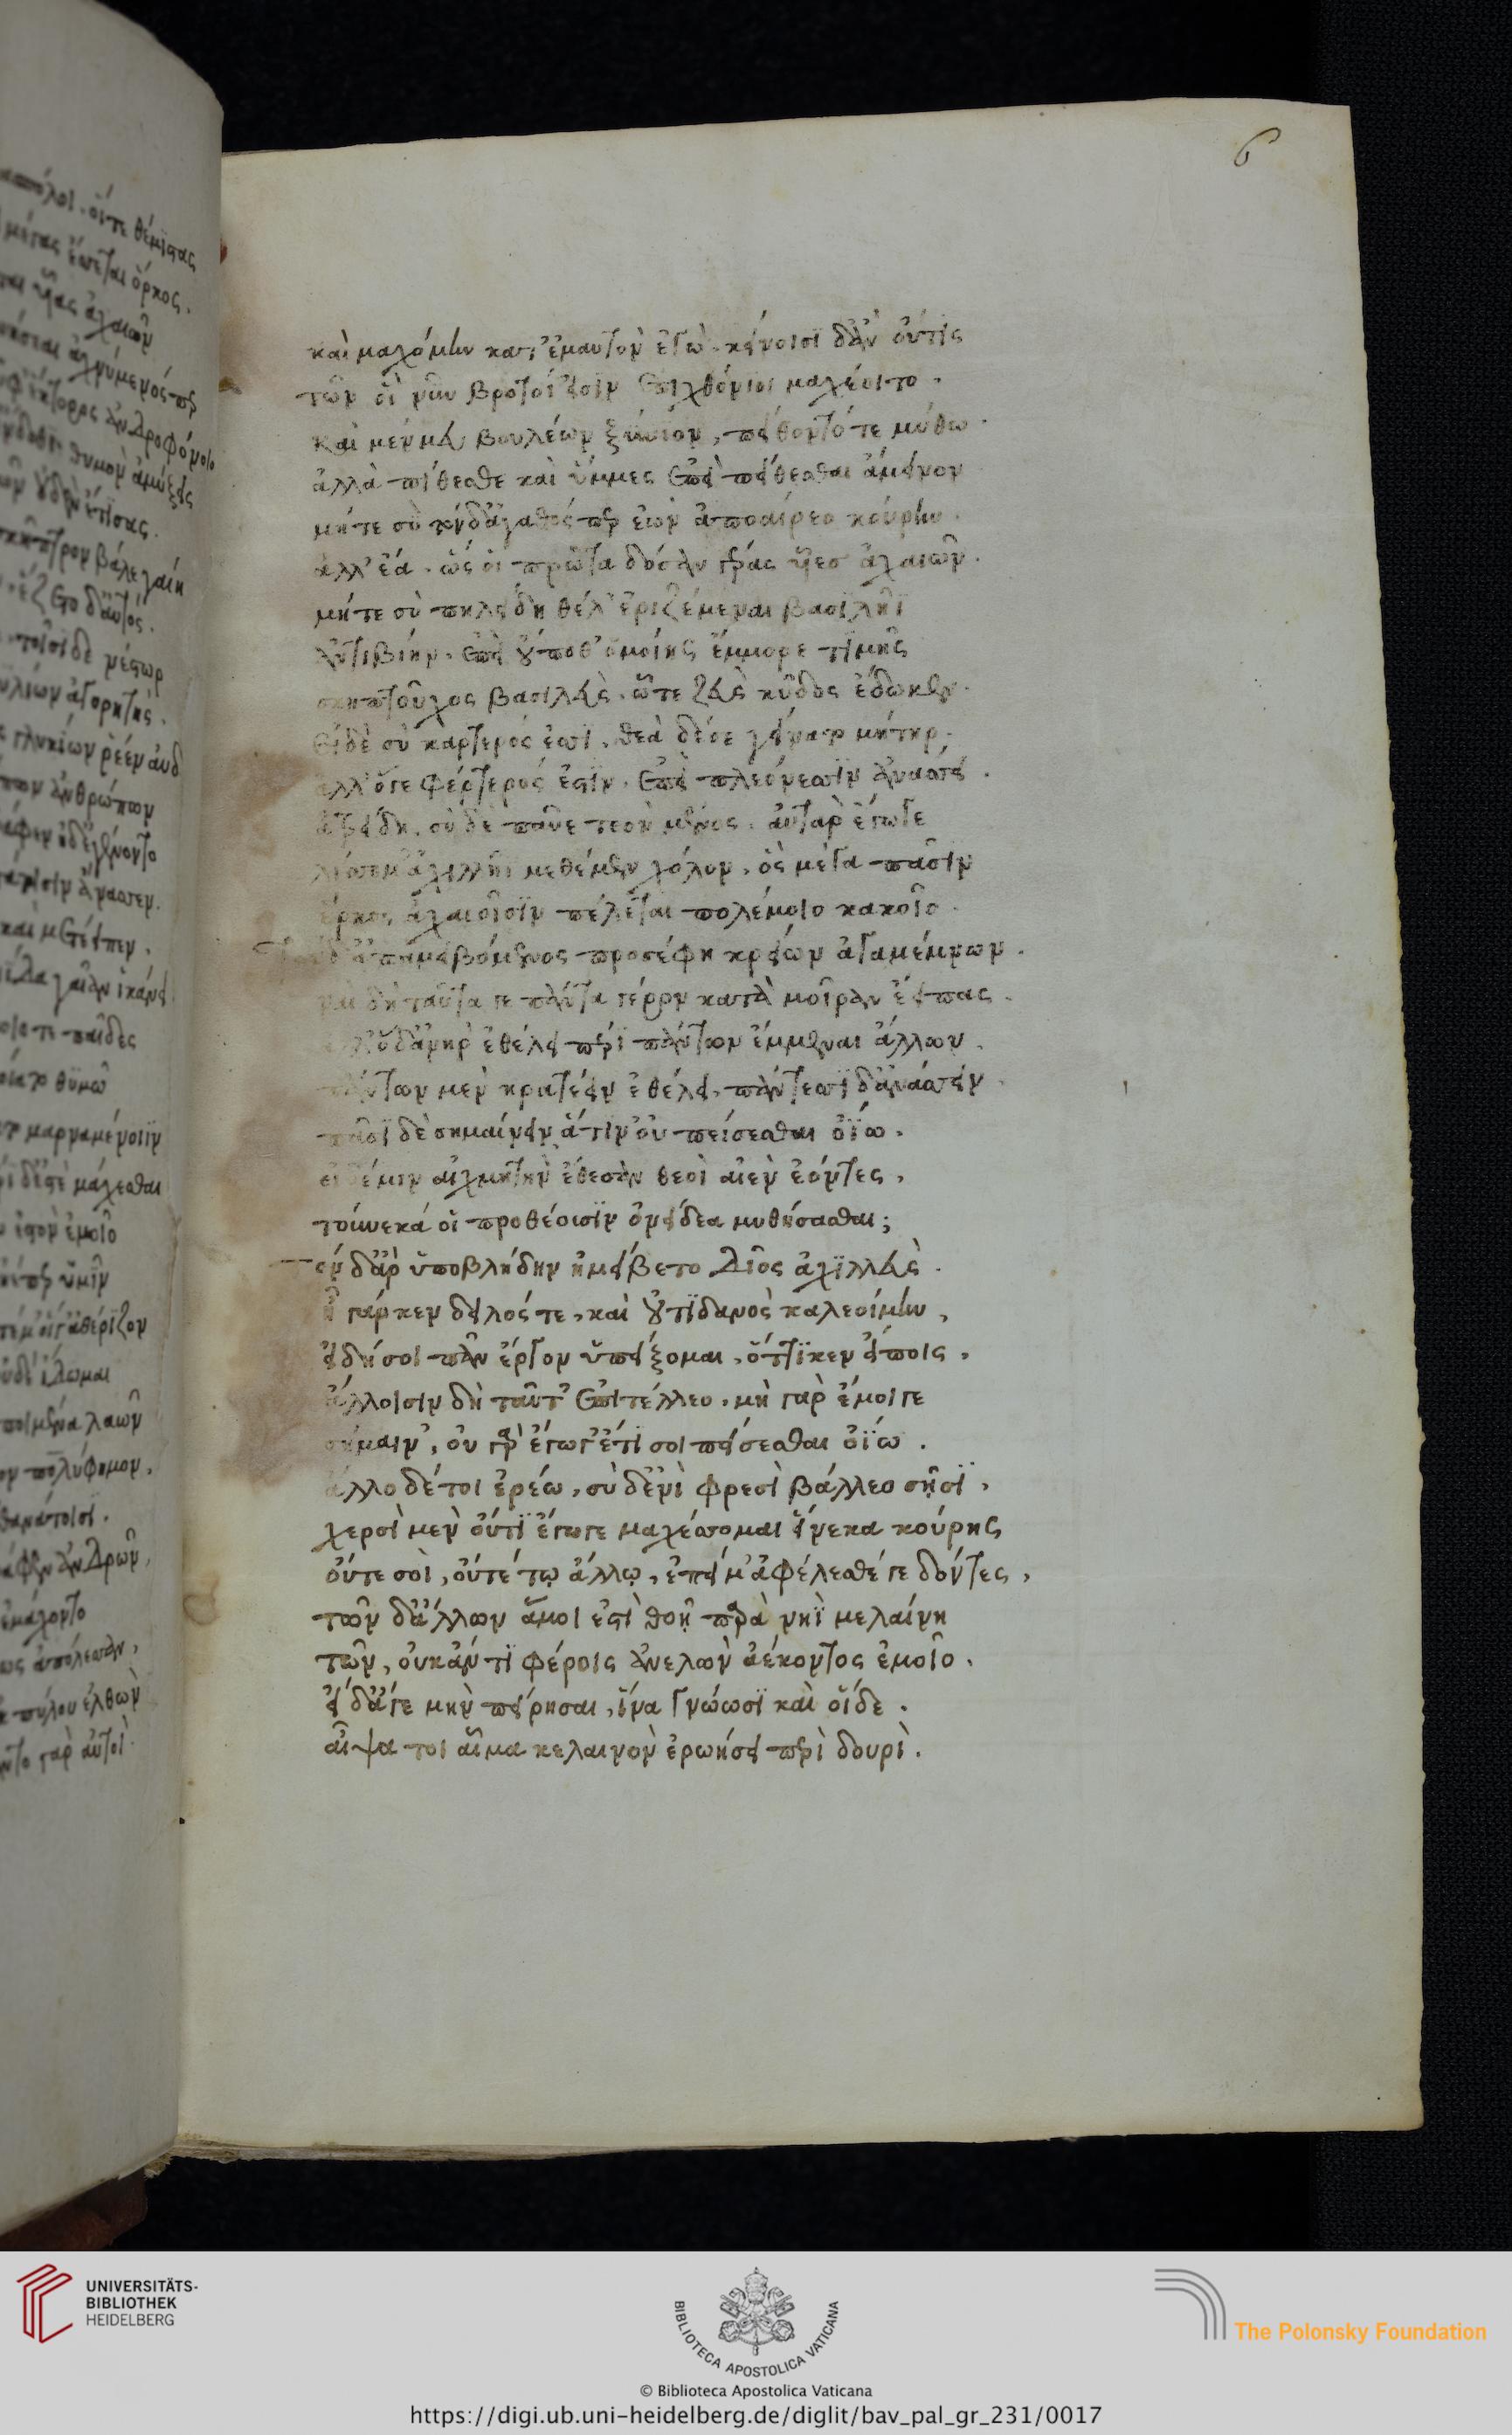 6
καὶ μαχόμην κατ' ἐμαυτὸν ἐγώ. κείνοισϊ δ' ἂν οὔτϊς
τῶν οἳ νῦν βροτοί εἰσϊν ἐπιχθόνιοι μαχέοιτο.
καὶ μέν μευ βουλέων ξύνιον, πείθοντό τε μύθω.
ἀλλὰ πίθεσθε καὶ ὔμμες ἐπεὶ πείθεσθαι ἄμεινον
μήτε σὺ τόνδ' ἀγαθός περ ἐὼν ἀποαίρεο κούρην.
ἀλλ' ἔα. ὥς οἱ πρῶτα δόσαν γέρας υἷες ἀχαιῶν.
μήτε σὺ πηλείδη θέλ' ἐριζέμεναι βασϊλῆϊ
ἀντιβίην. ἐπεὶ οὔποθ' ὁμοίης ἔμμορε τϊμῆς
σκηπτοῦχος βασιλεὺς. ὧτε ζεὺς κῦδος ἔδωκεν.
εἰ δὲ σὺ κάρτερός ἐσσϊ. θεὰ δέ σε γείνατο μήτηρ.
ἀλλ' ὅγε φέρτερός ἐστϊν. ἐπεὶ πλεόνεσσϊν ἀνάσσει.
ἀτρείδη. σὺ δὲ παῦε τεὸν μένος. αὐτὰρ ἔγωγε
λίσσομ' ἀχιλλῆϊ μεθέμεν χόλον. ὃς μέγα πᾶσϊν
ἕρκος ἀχαιοῖσϊν πέλεται πολέμοιο κακοῖο.
Τὸν δ' ἀπαμειβόμενος προσέφη κρείων ἀγαμέμνων.
ναὶ δὴ ταῦτά γε πάντα γέρον κατὰ μοῖραν ἔειπας.
ἀλλ' ὅδ' ἀνὴρ ἐθέλει περὶ πάντων ἔμμεναι ἄλλων.
πάντων μὲν κρατέειν ἐθέλει. πάντεσσϊ δ' ἀνάσσειν.
πᾶσϊ δὲ σημαίνειν ἅτιν' οὐ πείσεσθαι ὀΐω.
εἰ δέ μιν αἰχμητὴν ἔθεσαν θεοὶ αἰὲν ἐόντες,
τοὔνεκά οἱ προθέουσϊν ὀνείδεα μυθήσασθαι;
Τὸν δ' ἂρ ὑποβλήδην ἠμείβετο δῖος ἀχϊλλεὺς.
ἦ γάρ κεν δειλός τε, καὶ οὐτϊδανὸς καλεοίμην,
εἰ δή σοι πᾶν ἔργον ὑπείξομαι, ὅττϊ κεν εἴποις,
ἄλλοισιν δὴ ταῦτ' ἐπιτέλλεο, μὴ γὰρ ἔμοιγε
σήμαιν', οὐ γὰρ ἔγωγ' ἔτϊ σοι πείσεσθαι ὀΐω.
ἄλλο δέ τοι ἐρέω, σὺ δ' ἐνὶ φρεσὶ βάλλεο σῇσϊ,
χερσὶ μὲν οὔτϊ ἔγωγε μαχέσσομαι εἵνεκα κούρης
οὔτε σοὶ, οὔτέ τῳ ἄλλῳ, ἐπεί μ' ἀφέλεσθέ γε δόντες,
τῶν δ' ἄλλων ἅ μοι ἐστὶ θοῇ παρὰ νηῒ μελαίνη
τῶν, οὐκ ἄν τϊ φέροις ἀνελὼν ἀέκοντος ἐμοῖο.
εἰ δ' ἄγε μὴν πείρησαι, ἵνα γνώωσϊ καὶ οἵδε.
αἶψα τοι αἷμα κελαινὸν ἐρωήσει περὶ δουρὶ.
UNIVERSITÄTS-
BIBLIOTHEK
HEIDELBERG
BIBLIOTECA APOSTOLICA VATICANA
The Polonsky Foundation
© Biblioteca Apostolica Vaticana
https://digi.ub.uni-heidelberg.de/diglit/bav_pal_gr_231/0017